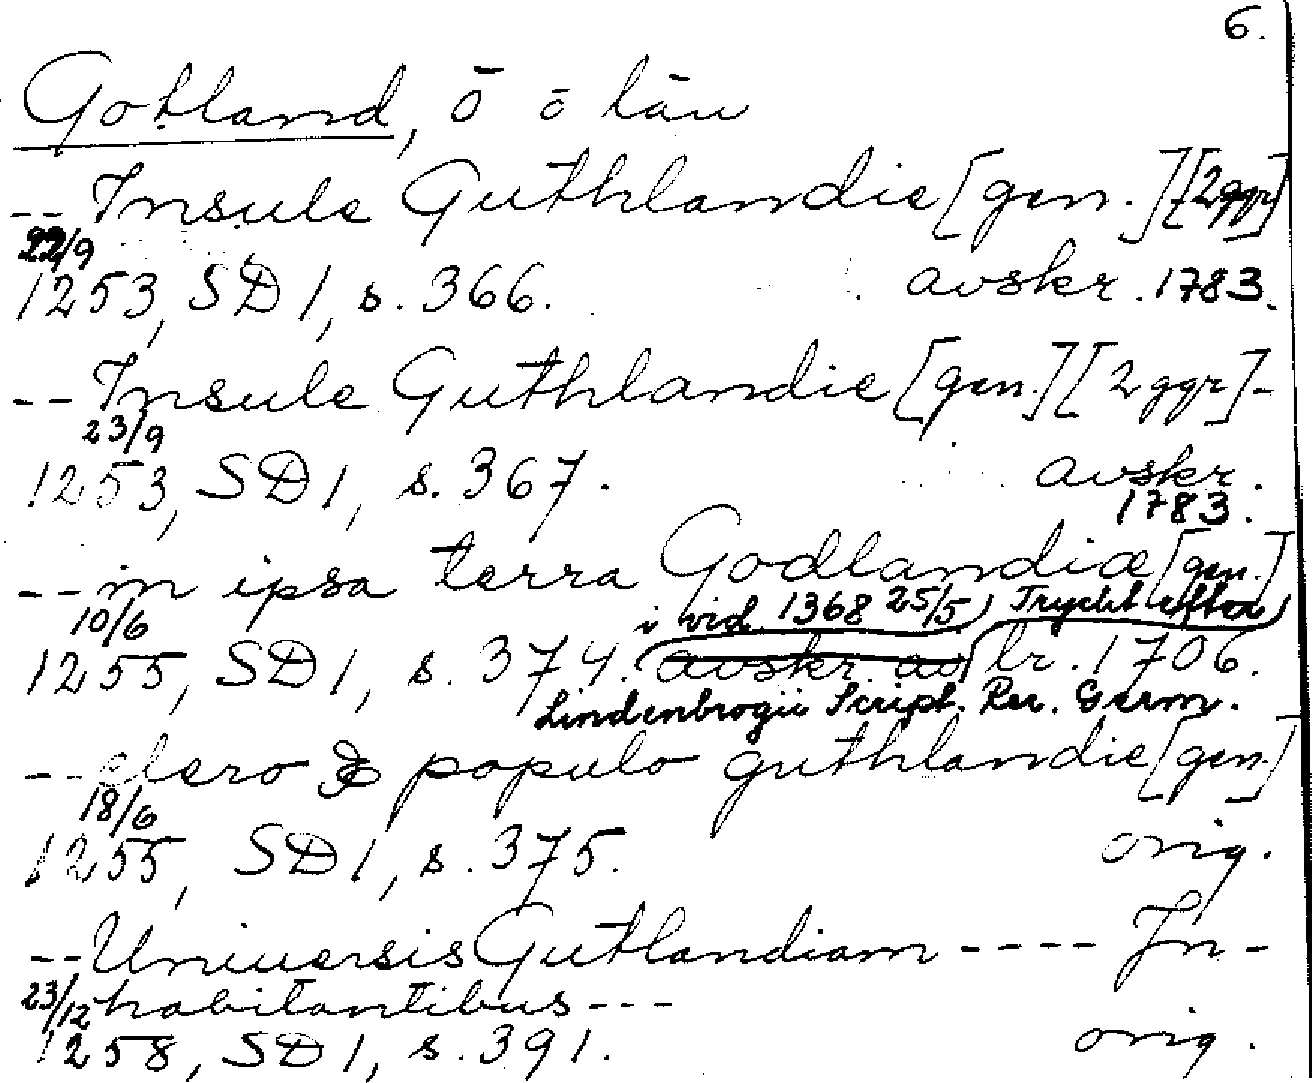 6.
Gotland, ö o län
-- Insule Guthlandie [gen.] [2 ggr]
22/9
1253, SD 1, s. 366. avskr. 1783.
-- Insule Guthlandie [gen.] [2 ggr] -
23/9
1253, SD 1, s. 367. avskr.
1783.
-- in ipsa terra Godlandiæ [gen.]
10/6 i vid. 1368 25/5, Tryckt efter
1255, SD 1, s. 374. avskr. av lr. 1706.
Lindenbrogii Script. Rer. Germ.
-- clero & populo guthlandie [gen.]
18/6
1255, SD 1, s. 375. orig.
-- Uniuersis Gutlandiam ---- In-
23/12 habitantibus ---
1258, SD 1, s. 391. orig.